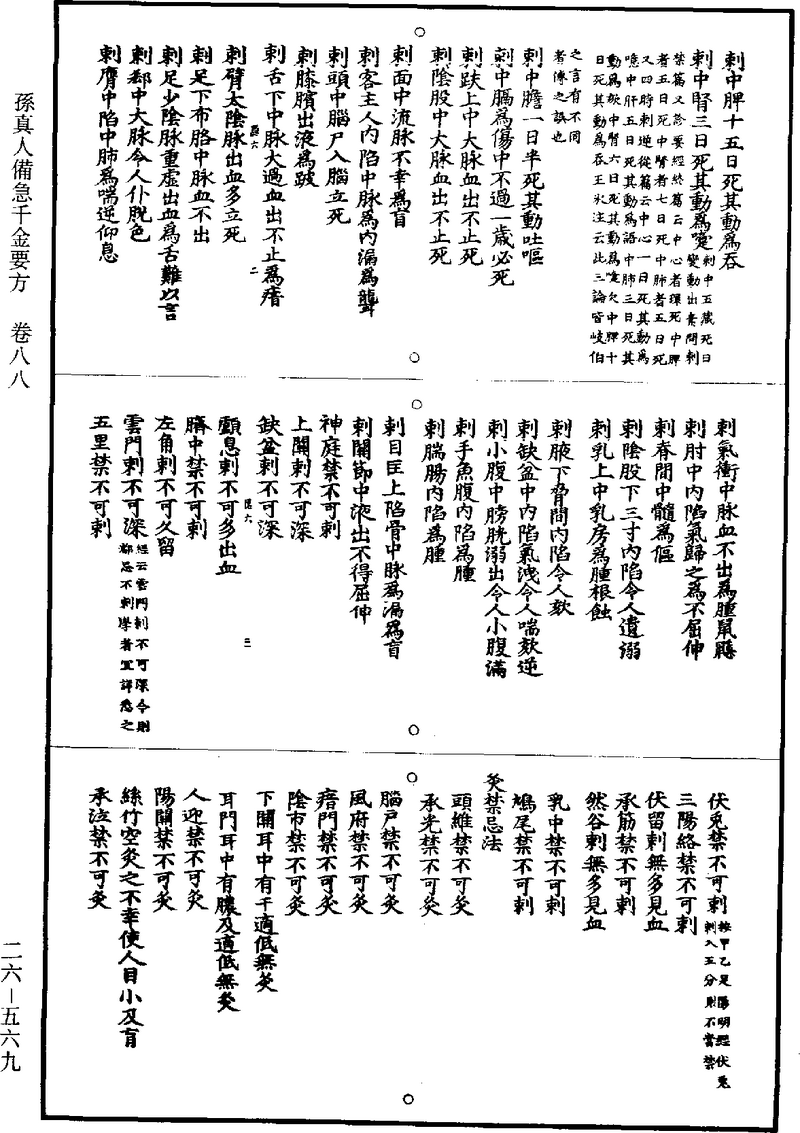 刺中脾十五日死其動為吞
刺中腎三日死其動為嚏刺中五藏死日變動出素問刺
禁篇又診要經終篇云中心者環死中脾
者五日死中腎者七日死中肺者五日死
又四時刺逆從篇云中心一日死其動為
噫中肝五日死其動為語中肺三日死其
動為欬中腎六日死其動為嚏欠中脾十
日死其動為吞王冰注云此三論皆岐伯
之言有不同
者傳之誤也
刺中膽一日半死其動吐嘔
刺中膈為傷中不過一歲必死
刺趺上中大脉血出不止死
刺陰股中大脉血出不止死
刺面中流脉不幸為盲
刺客主人內陷中脉為內漏為聾
刺頭中腦尸入腦立死
刺膝臏出液為跛
刺舌下中脉大過血出不止為瘖
刺臂太陰脉出血多立死
刺足下布胳中脉血不出
刺足少陰脉重虛出血為舌難以言
刺郄中大脉令人仆脫色
刺膺中陷中肺為喘逆仰息
刺氣衝中脉血不出為腫鼠鼷
刺肘中內陷氣歸之為不屈伸
刺脊間中髓為傴
刺陰股下三寸內陷令人遺溺
刺乳上中乳房為腫根蝕
刺腋下脅間內陷令人欬
刺缺盆中內陷氣洩令人喘欬逆
刺小腹中膀胱溺出令人小腹滿
刺手魚腹內陷為腫
刺腨腸內陷為腫
刺目匡上陷骨中脉為漏為盲
刺關節中液出不得屈伸
神庭禁不可刺
上關刺不可深
缺盆刺不可深
顱息刺不可多出血
臍中禁不可刺
左角刺不可久留
雲門刺不可深經云雲門刺不可深今則
都忌不刺學者宜詳悉之
五里禁不可刺
伏兔禁不可刺按甲乙足陽明經伏兔
刺入五分則不當禁
三陽絡禁不可刺
伏留刺無多見血
承筋禁不可刺
然谷刺無多見血
乳中禁不可刺
鳩尾禁不可刺
灸禁忌法
頭維禁不可灸
承光禁不可灸
腦戶禁不可灸
風府禁不可灸
瘖門禁不可灸
陰市禁不可灸
下關耳中有干適低無灸
耳門耳中有膿及適低無灸
人迎禁不可灸
陽關禁不可灸
絲竹空灸之不幸使人目小及盲
承泣禁不可灸
孫真人備急千金要方 卷八八
二六－五六九